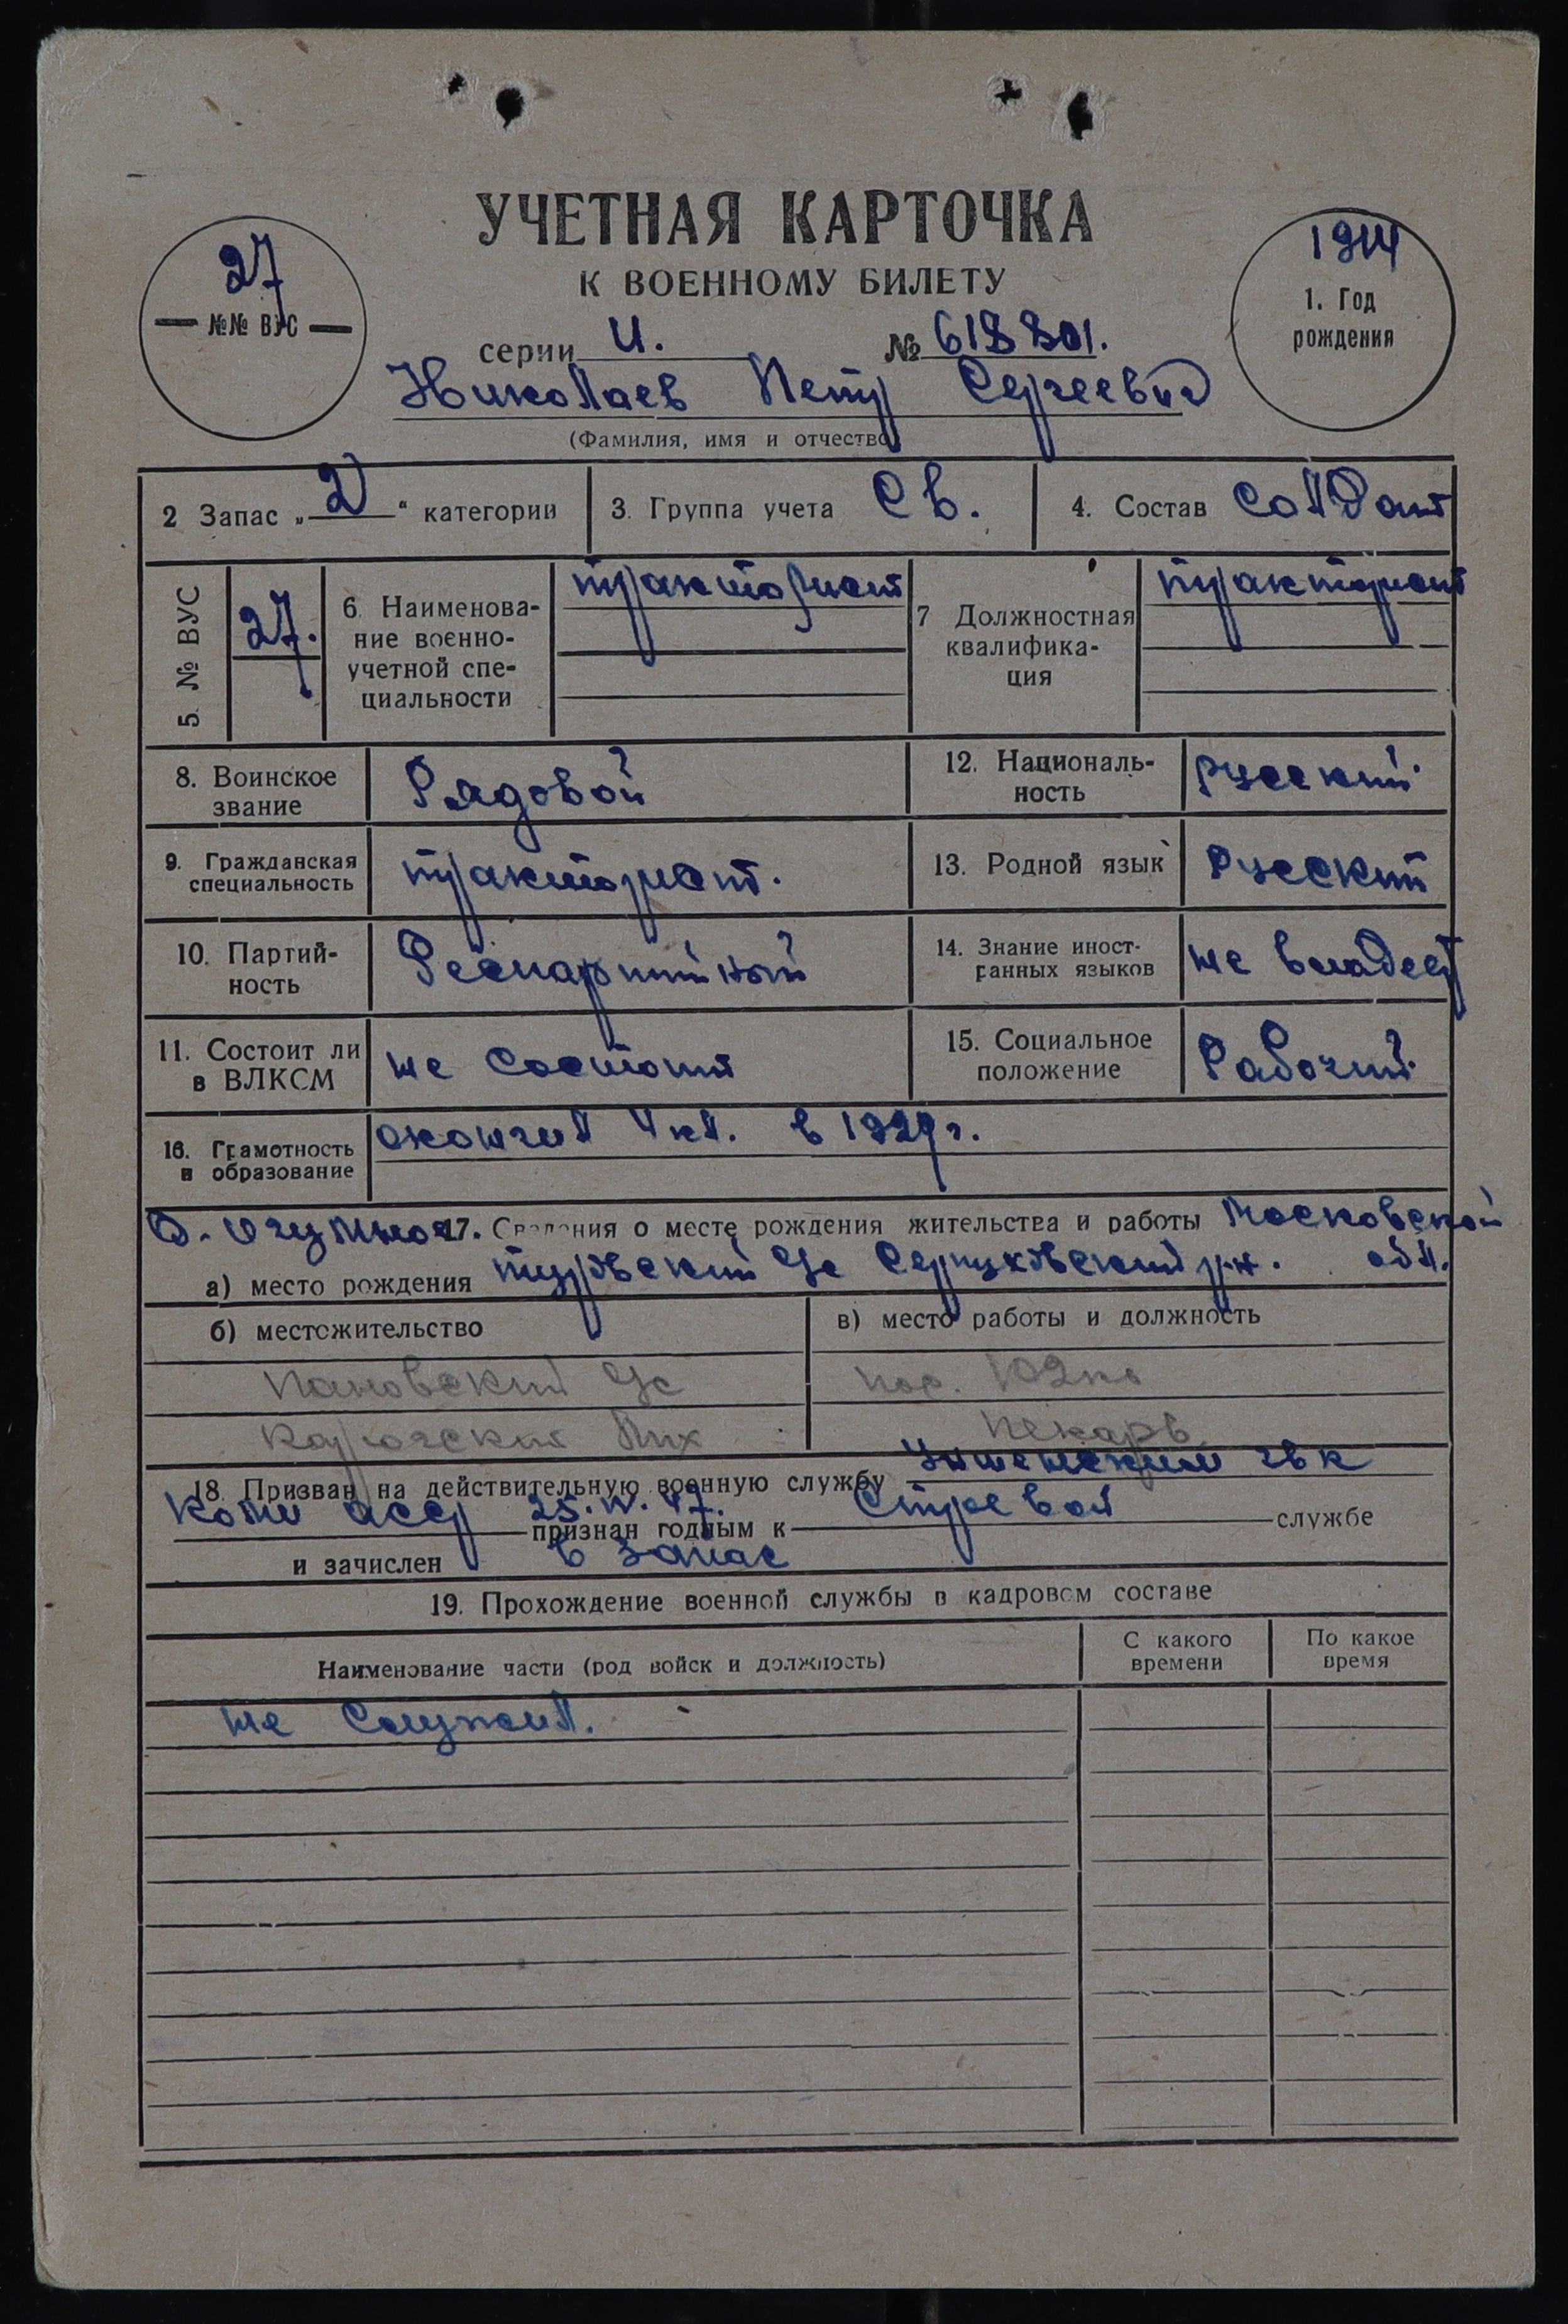 УЧЕТНАЯ КАРТОЧКА
К ВОЕННОМУ БИЛЕТУ
27
№№ ВУС
1914
1. Год
рождения
серии И. №
Николаев Петр Сергеевич
(Фамилия, имя и отчество)
2 Запас „2“ категории
3. Группа учета Св.
4. Состав Солдат
5. № ВУС
27.
6. Наименова-
ние военно-
учетной спе-
циальности
тракторист
7 Должностная
квалифика-
ция
тракторист
8. Воинское
звание
Рядовой
12. Националь-
ность
русский.
9. Гражданская
специальность
тракторист.
13. Родной язык
Русский
10. Партий-
ность
Беспартийный
14. Знание иност-
ранных языков
не владеет
11. Состоит ли
в ВЛКСМ
не состоит
15. Социальное
положение
Рабочий.
16. Грамотность
и образование
окончил 4 кл. в 1927 г.
17. Сведения о месте рождения жительства и работы Московской
а) место рождения Туровский с/с Серпуховский р-н. обл.
б) местожительство
в) место работы и должность
с/с
Пекарь
18. Призван на действительную военную службу гвк
Коми асср 25. IV. 47. признан годным к Строевой службе
и зачислен в запас
19. Прохождение военной службы в кадровом составе
Наименование части (род войск и должность)
С какого
времени
По какое
время
не служил.